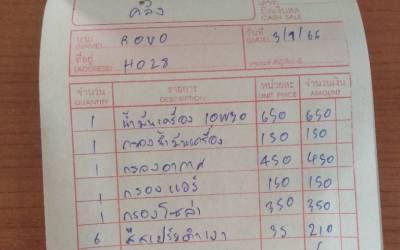 คลัง
บิลเงินสด
CASH SALE
นาม
(NAME) BOVO
วันที่
(DATE) 3/9/66
ที่อยู่
(ADDRESS) HO28
จำนวน รายการ หน่วยละ จำนวนเงิน
QUANTITY DESCRIPTION UNIT PRICE AMOUNT
1 น้ำมันเครื่อง 10W30 650 650
1 กรองน้ำมันเครื่อง 150 150
1 กรองอากาศ 450 450
1 กรองแอร์ 150 150
1 กรองโซล่า 350 350
6 สีสเปรย์ดำเงา 35 210